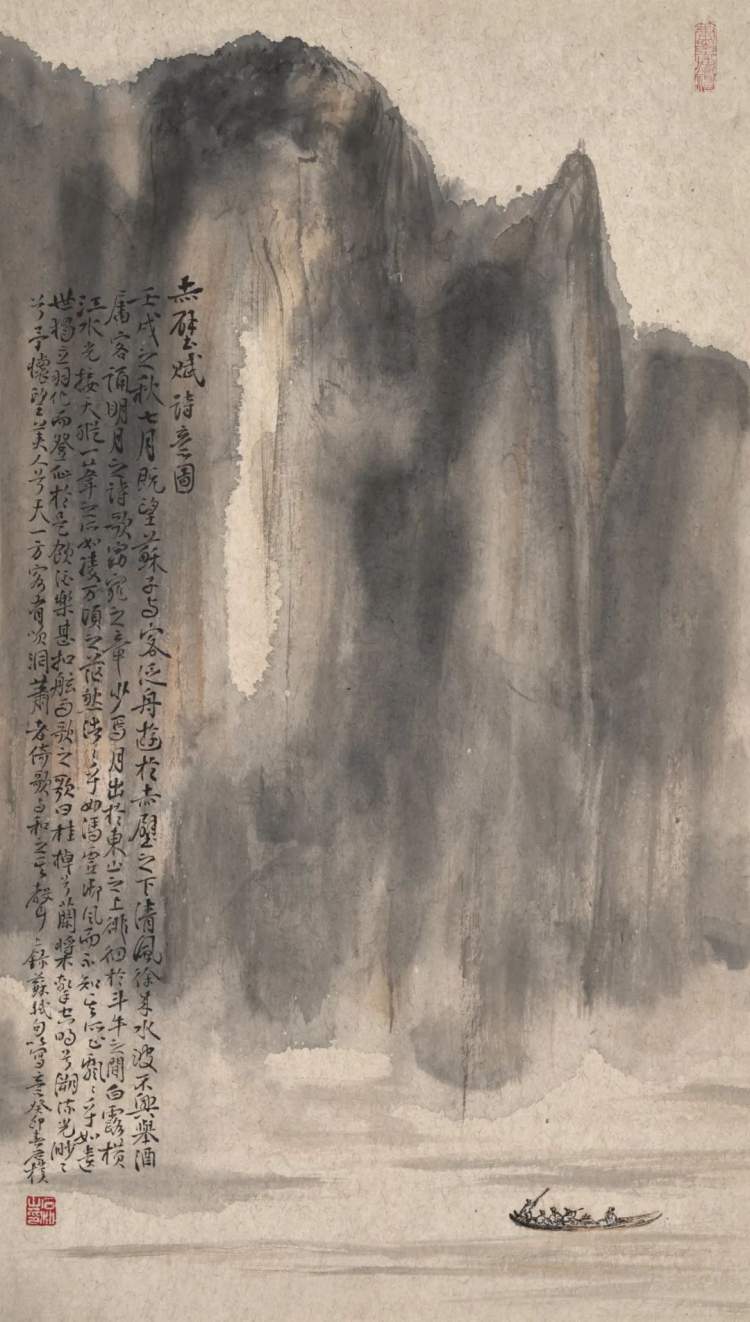 赤壁賦詩意圖
壬戌之秋七月既望蘇子与客泛舟遊於赤壁之下清風徐来水波不興舉酒
属客誦明月之詩歌窈窕之章少焉月出於東山之上徘徊於斗牛之間白露橫
江水光接天縱一葦之所如凌万頃之茫然浩〻乎如馮虛御風而不知其所止飄〻乎如遺
世獨立羽化而登仙於是飲酒樂甚扣舷而歌之歌曰桂棹兮蘭槳擊空明兮溯流光渺〻
兮予懷望美人兮天一方客有吹洞簫者倚歌而和之其聲錄蘇軾句以寫意癸卯春